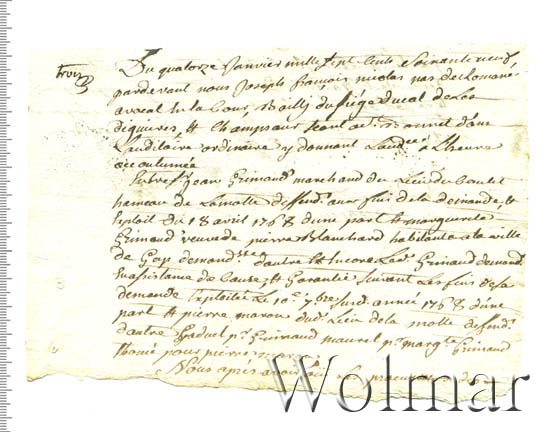 trois
Du quatorze Janvier mille sept cents soixante neuf,
pardevant nous Joseph françois nicolas pas de Lomanie
avocat En la Cour, Bailly du siége ducal de Les
diguieres, et Champsaur seant a St Bonnet dans
L'auditoire ordinaire y donnant L'audce a L'heure
accoutumée
Entre Sr jean Grimaud marchand du Lieu de
hameau de Lamotte deffendr aux fins de la demande et
Exploit du 18 avril 1768 d'une part et marguerite
Grimaud veuve de pierre Blanchard habitante a la ville
de Gap demandsse d'autre et Encore Led. Grimaud demandr
En assistance de Cause et Garantie suivant Les fins de sa
demande Exploitée Le 10e 7bre susd. année 1768 d'une
part et pierre maron dud. Lieu de la motte deffendr
d'autre pr Grimaud maurel pr margte Grimaud
thomé pour pierre maron
Nous après avoir
Wolmar